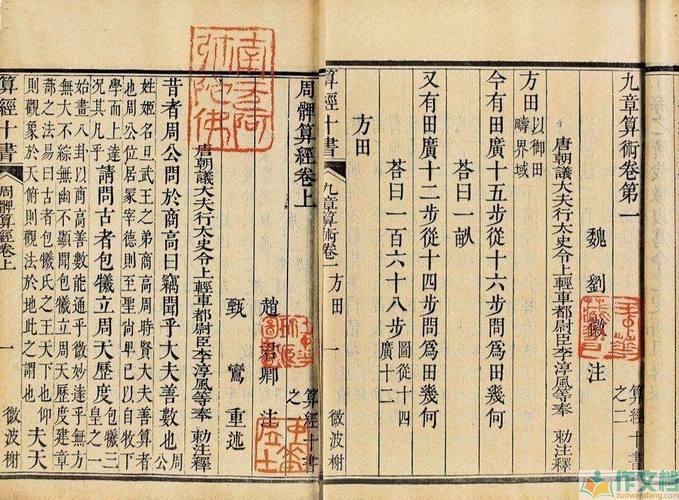 九章算術卷第一 算經十書之二
魏 劉徽 注
唐朝議大夫行太史令上輕車都尉臣李淳風等奉 敕注釋
方田 以御田疇界域
今有田廣十五步從十六步問爲田幾何
荅曰一畝
又有田廣十二步從十四步問爲田幾何
荅曰一百六十八步 圖從十四廣十二
方田
算經十書 九章算術卷一 方田 微波榭
周髀算經卷上 算經十書之
趙君卿 注
甄鸞 重述
唐朝議大夫行太史令上輕車都尉臣李淳風等奉 敕注釋
昔者周公問於商高曰竊聞乎大夫善數也 周公
姓姬名旦武王之弟商高周時賢大夫善算者
周公位居冢宰德則至聖尚卑已以自牧下
學而上達況其凡乎 請問古者包犧立周天歷度 包犧三皇之一
始畫八卦以商高善數能通乎微妙達乎無方
無大不綜無幽不顯聞包犧立周天歷度建章
蔀之法易曰古者包犧氏之王天下也仰
則觀象於天俯則觀法於地此之謂也 夫天
算經十書 周髀算經卷上 一 微波榭
南无阿弥陀佛
作文档
zuowendang.com